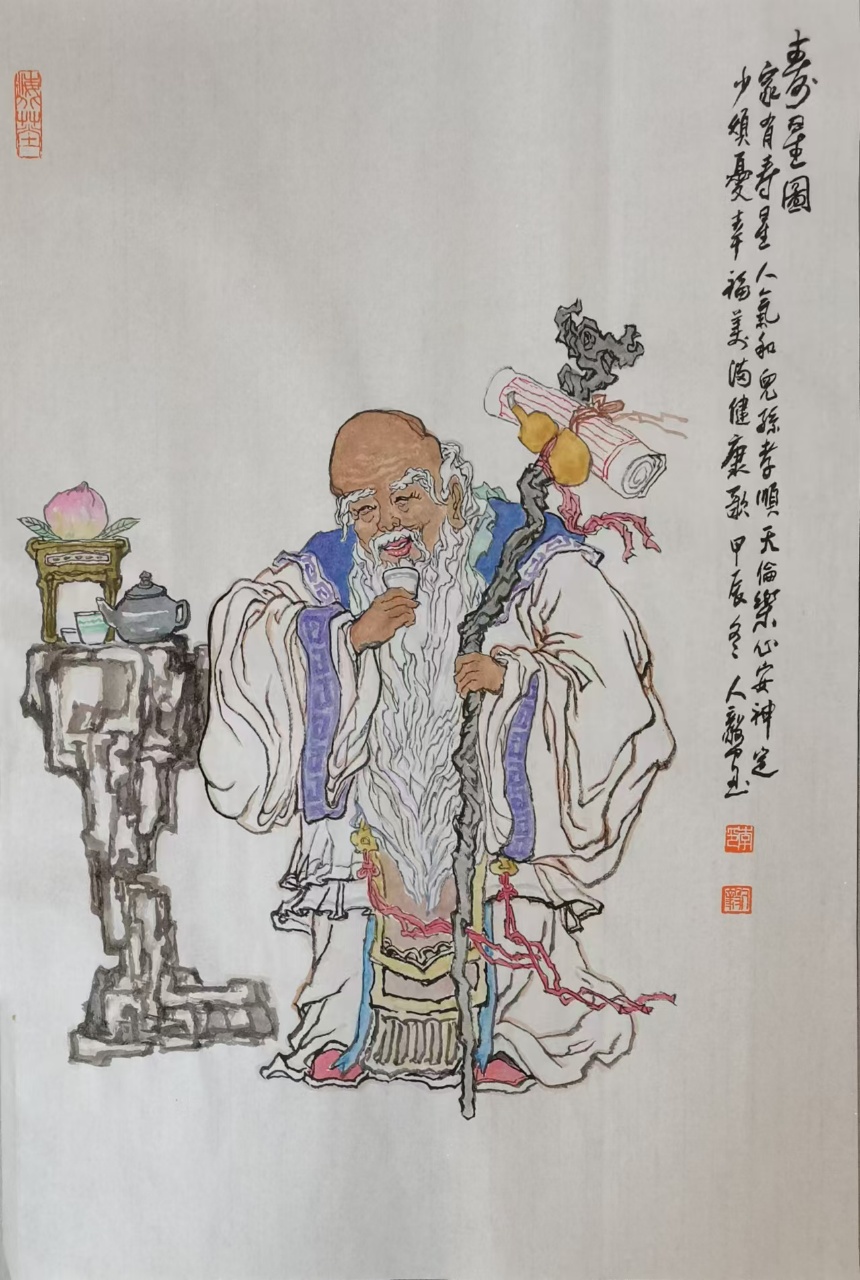 壽星圖
家有壽星人氣和兒孫孝順天倫樂心安神定
少煩憂幸福美滿健康歌甲辰冬人毅寫